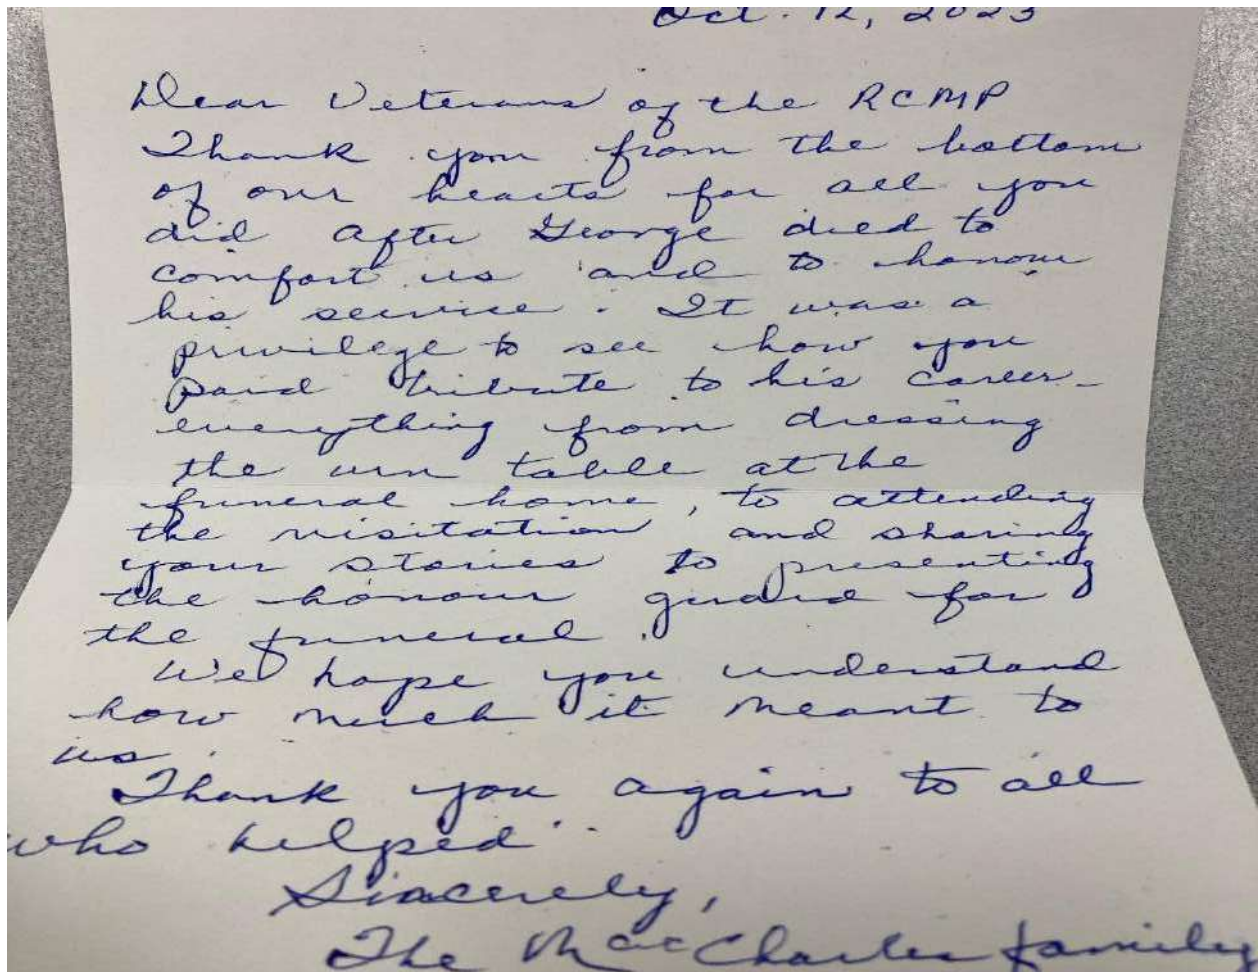 Oct. 12, 2023
Dear Veterans of the RCMP
Thank you from the bottom
of our hearts for all you
did after George died to
comfort us and to honour
his service. It was a
privilege to see how you
paid tribute to his career -
everything from dressing
the urn table at the
funeral home, to attending
the visitation and sharing
your stories to presenting
the honour guard for
the funeral.
We hope you understand
how much it meant to
us.
Thank you again to all
who helped.
Sincerely,
The MacCharles family